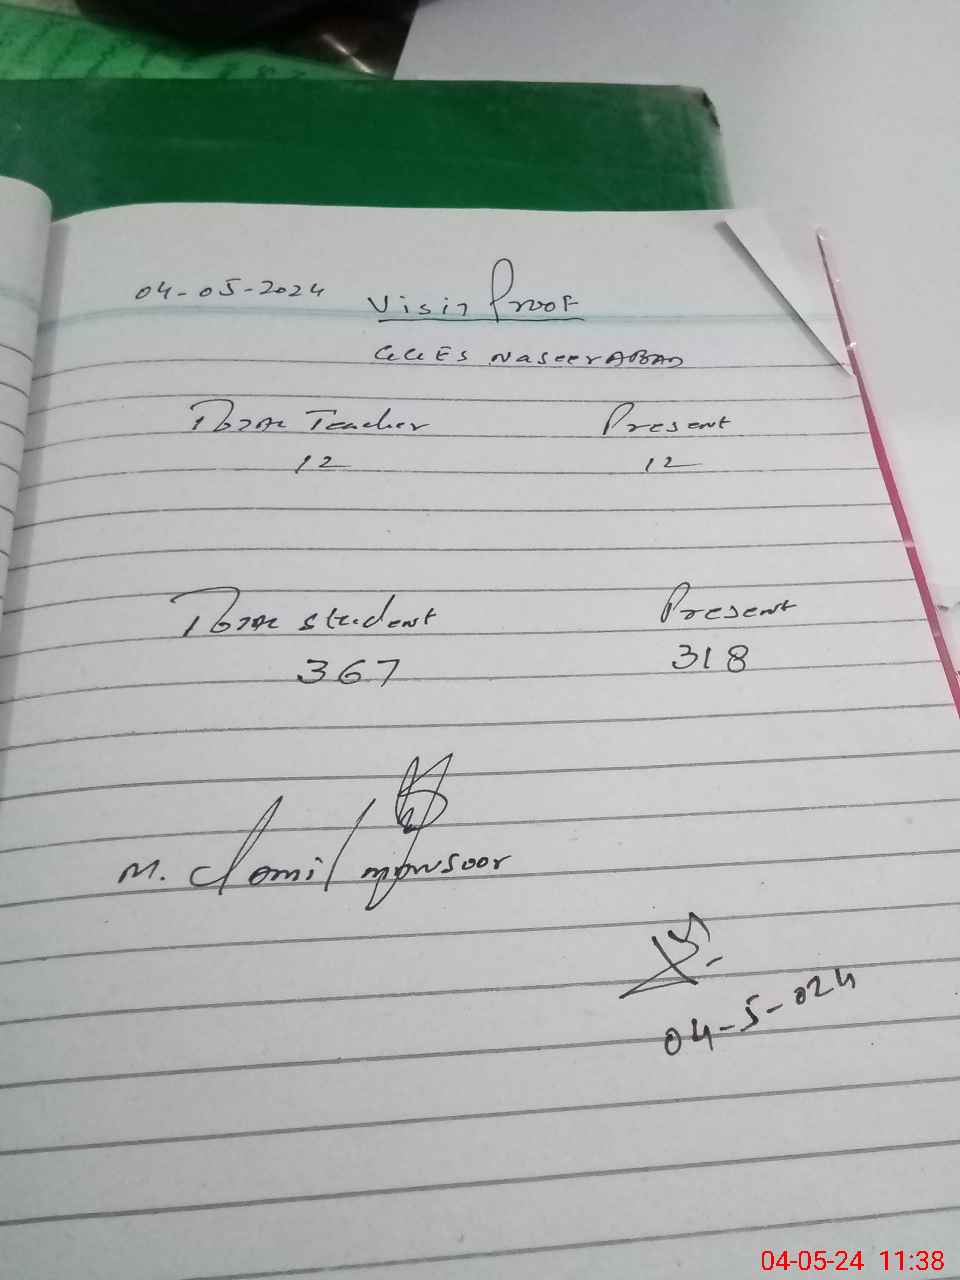 04-05-2024 Visit Proof
GGES NaseerABAD
Total Teacher Present
12 12
Total student Present
367 318
M. Jamil mansoor
04-5-024
04-05-24 11:38